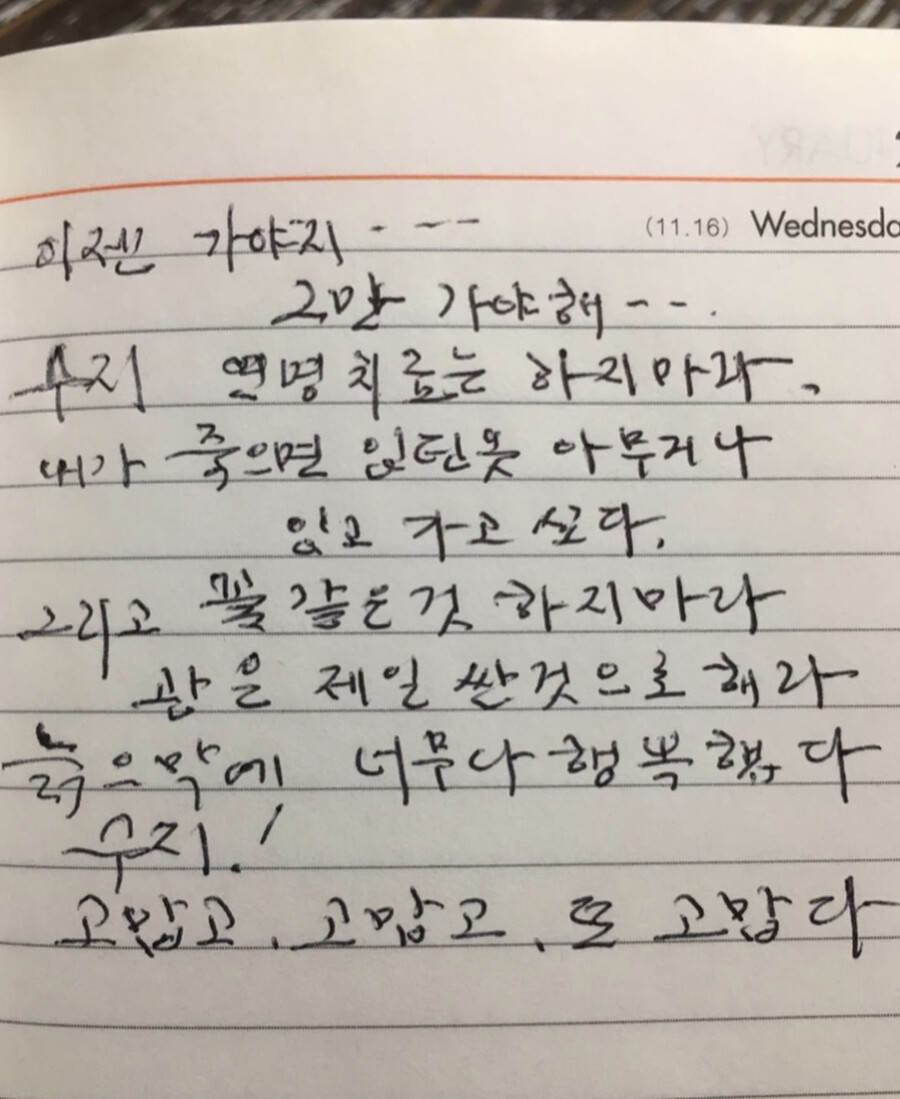 (11.16) Wednesda
이젠 가야지 - ---
그만 가야해 --.
수지 연명치료는 하지마라.
내가 죽으면 입던옷 아무거나
입고 가고 싶다.
그리고 꽃 같은것 하지마라
관은 제일 싼것으로 해라
늙으막에 너무나 행복했다
수지.!
고맙고, 고맙고, 또 고맙다